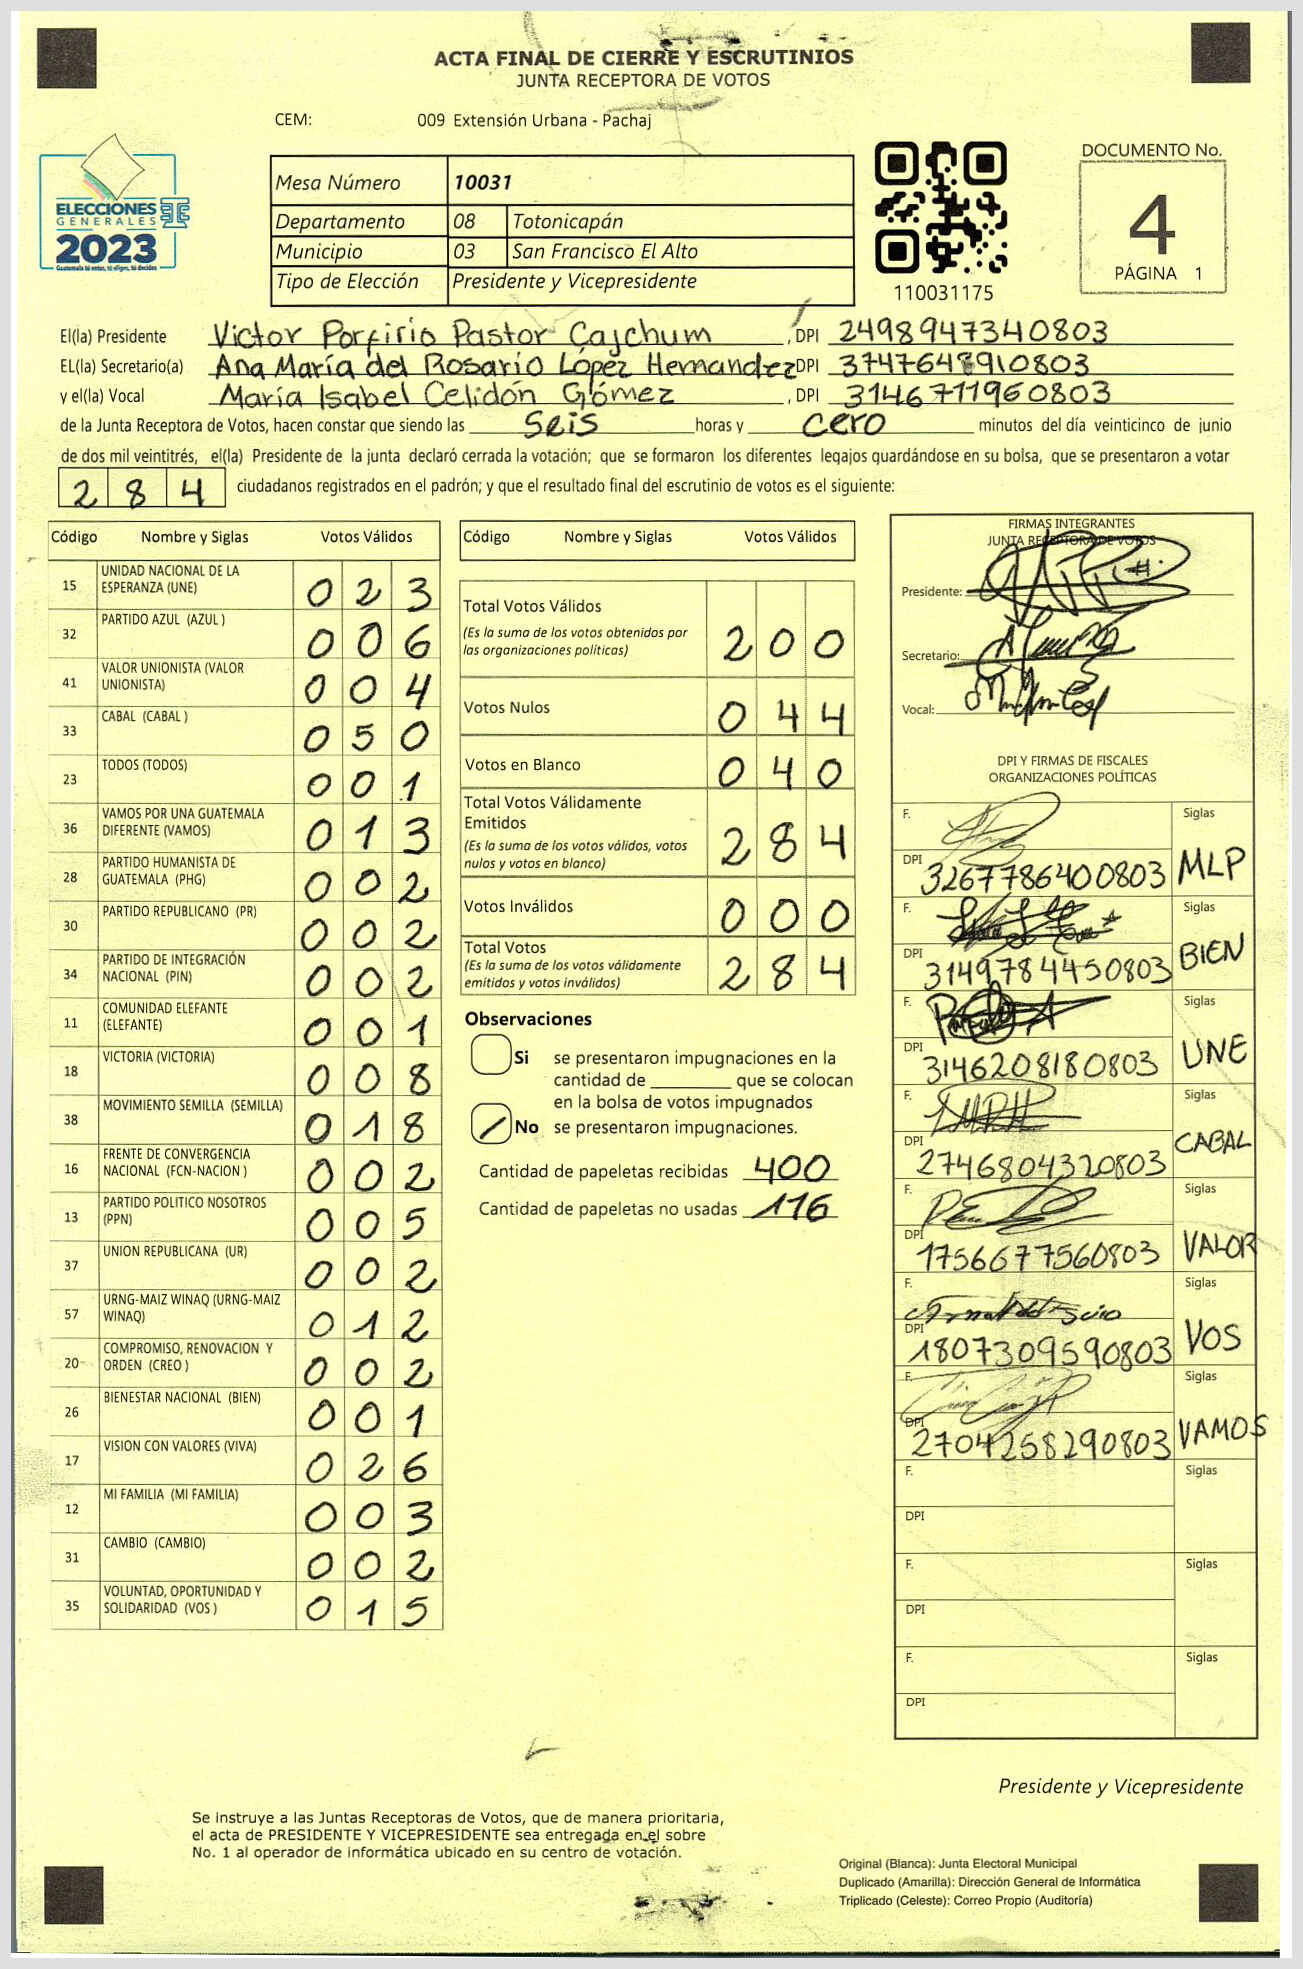 ACTA FINAL DE CIERRE Y ESCRUTINIOS
JUNTA RECEPTORA DE VOTOS
CEM: 009 Extensión Urbana - Pachaj
ELECCIONES
GENERALES
2023
Guatemala tú entras, tú eliges, tú decides
Mesa Número 10031
Departamento 08 Totonicapán
Municipio 03 San Francisco El Alto
Tipo de Elección Presidente y Vicepresidente
110031175
DOCUMENTO No.
4
PÁGINA 1
El(la) Presidente Victor Porfirio Pastor Cajchum , DPI 2498947340803
EL(la) Secretario(a) Ana María del Rosario López Hernandez DPI 3747648910803
y el(la) Vocal María Isabel Celidón Gómez , DPI 3146711960803
de la Junta Receptora de Votos, hacen constar que siendo las Seis horas y cero minutos del día veinticinco de junio
de dos mil veintitrés, el(la) Presidente de la junta declaró cerrada la votación; que se formaron los diferentes legajos guardándose en su bolsa, que se presentaron a votar
284 ciudadanos registrados en el padrón; y que el resultado final del escrutinio de votos es el siguiente:
Código Nombre y Siglas Votos Válidos
15 UNIDAD NACIONAL DE LA ESPERANZA (UNE) 023
32 PARTIDO AZUL (AZUL ) 006
41 VALOR UNIONISTA (VALOR UNIONISTA) 004
33 CABAL (CABAL ) 050
23 TODOS (TODOS) 001
36 VAMOS POR UNA GUATEMALA DIFERENTE (VAMOS) 013
28 PARTIDO HUMANISTA DE GUATEMALA (PHG) 002
30 PARTIDO REPUBLICANO (PR) 002
34 PARTIDO DE INTEGRACIÓN NACIONAL (PIN) 002
11 COMUNIDAD ELEFANTE (ELEFANTE) 001
18 VICTORIA (VICTORIA) 008
38 MOVIMIENTO SEMILLA (SEMILLA) 018
16 FRENTE DE CONVERGENCIA NACIONAL (FCN-NACION ) 002
13 PARTIDO POLITICO NOSOTROS (PPN) 005
37 UNION REPUBLICANA (UR) 002
57 URNG-MAIZ WINAQ (URNG-MAIZ WINAQ) 012
20 COMPROMISO, RENOVACION Y ORDEN (CREO ) 002
26 BIENESTAR NACIONAL (BIEN) 001
17 VISION CON VALORES (VIVA) 026
12 MI FAMILIA (MI FAMILIA) 003
31 CAMBIO (CAMBIO) 002
35 VOLUNTAD, OPORTUNIDAD Y SOLIDARIDAD (VOS ) 015
Código Nombre y Siglas Votos Válidos
Total Votos Válidos
(Es la suma de los votos obtenidos por
las organizaciones políticas) 200
Votos Nulos 044
Votos en Blanco 040
Total Votos Válidamente
Emitidos
(Es la suma de los votos válidos, votos
nulos y votos en blanco) 284
Votos Inválidos 000
Total Votos
(Es la suma de los votos válidamente
emitidos y votos inválidos) 284
Observaciones
Si se presentaron impugnaciones en la
cantidad de ________ que se colocan
en la bolsa de votos impugnados
No se presentaron impugnaciones.
Cantidad de papeletas recibidas 400
Cantidad de papeletas no usadas 116
FIRMAS INTEGRANTES
JUNTA RECEPTORA DE VOTOS
Presidente:
Secretario:
Vocal:
DPI Y FIRMAS DE FISCALES
ORGANIZACIONES POLÍTICAS
F. Siglas
DPI 3267786400803 MLP
F. Siglas
DPI 3149784450803 BIEN
F. Siglas
DPI 3146208180803 UNE
F. Siglas
DPI 2746804320803 CABAL
F. Siglas
DPI 1756677560803 VALOR
F. Siglas
DPI 1807309590803 VOS
F. Siglas
DPI 2704258290803 VAMOS
F. Siglas
DPI
F. Siglas
DPI
F. Siglas
DPI
Presidente y Vicepresidente
Se instruye a las Juntas Receptoras de Votos, que de manera prioritaria,
el acta de PRESIDENTE Y VICEPRESIDENTE sea entregada en el sobre
No. 1 al operador de informática ubicado en su centro de votación.
Original (Blanca): Junta Electoral Municipal
Duplicado (Amarilla): Dirección General de Informática
Triplicado (Celeste): Correo Propio (Auditoría)